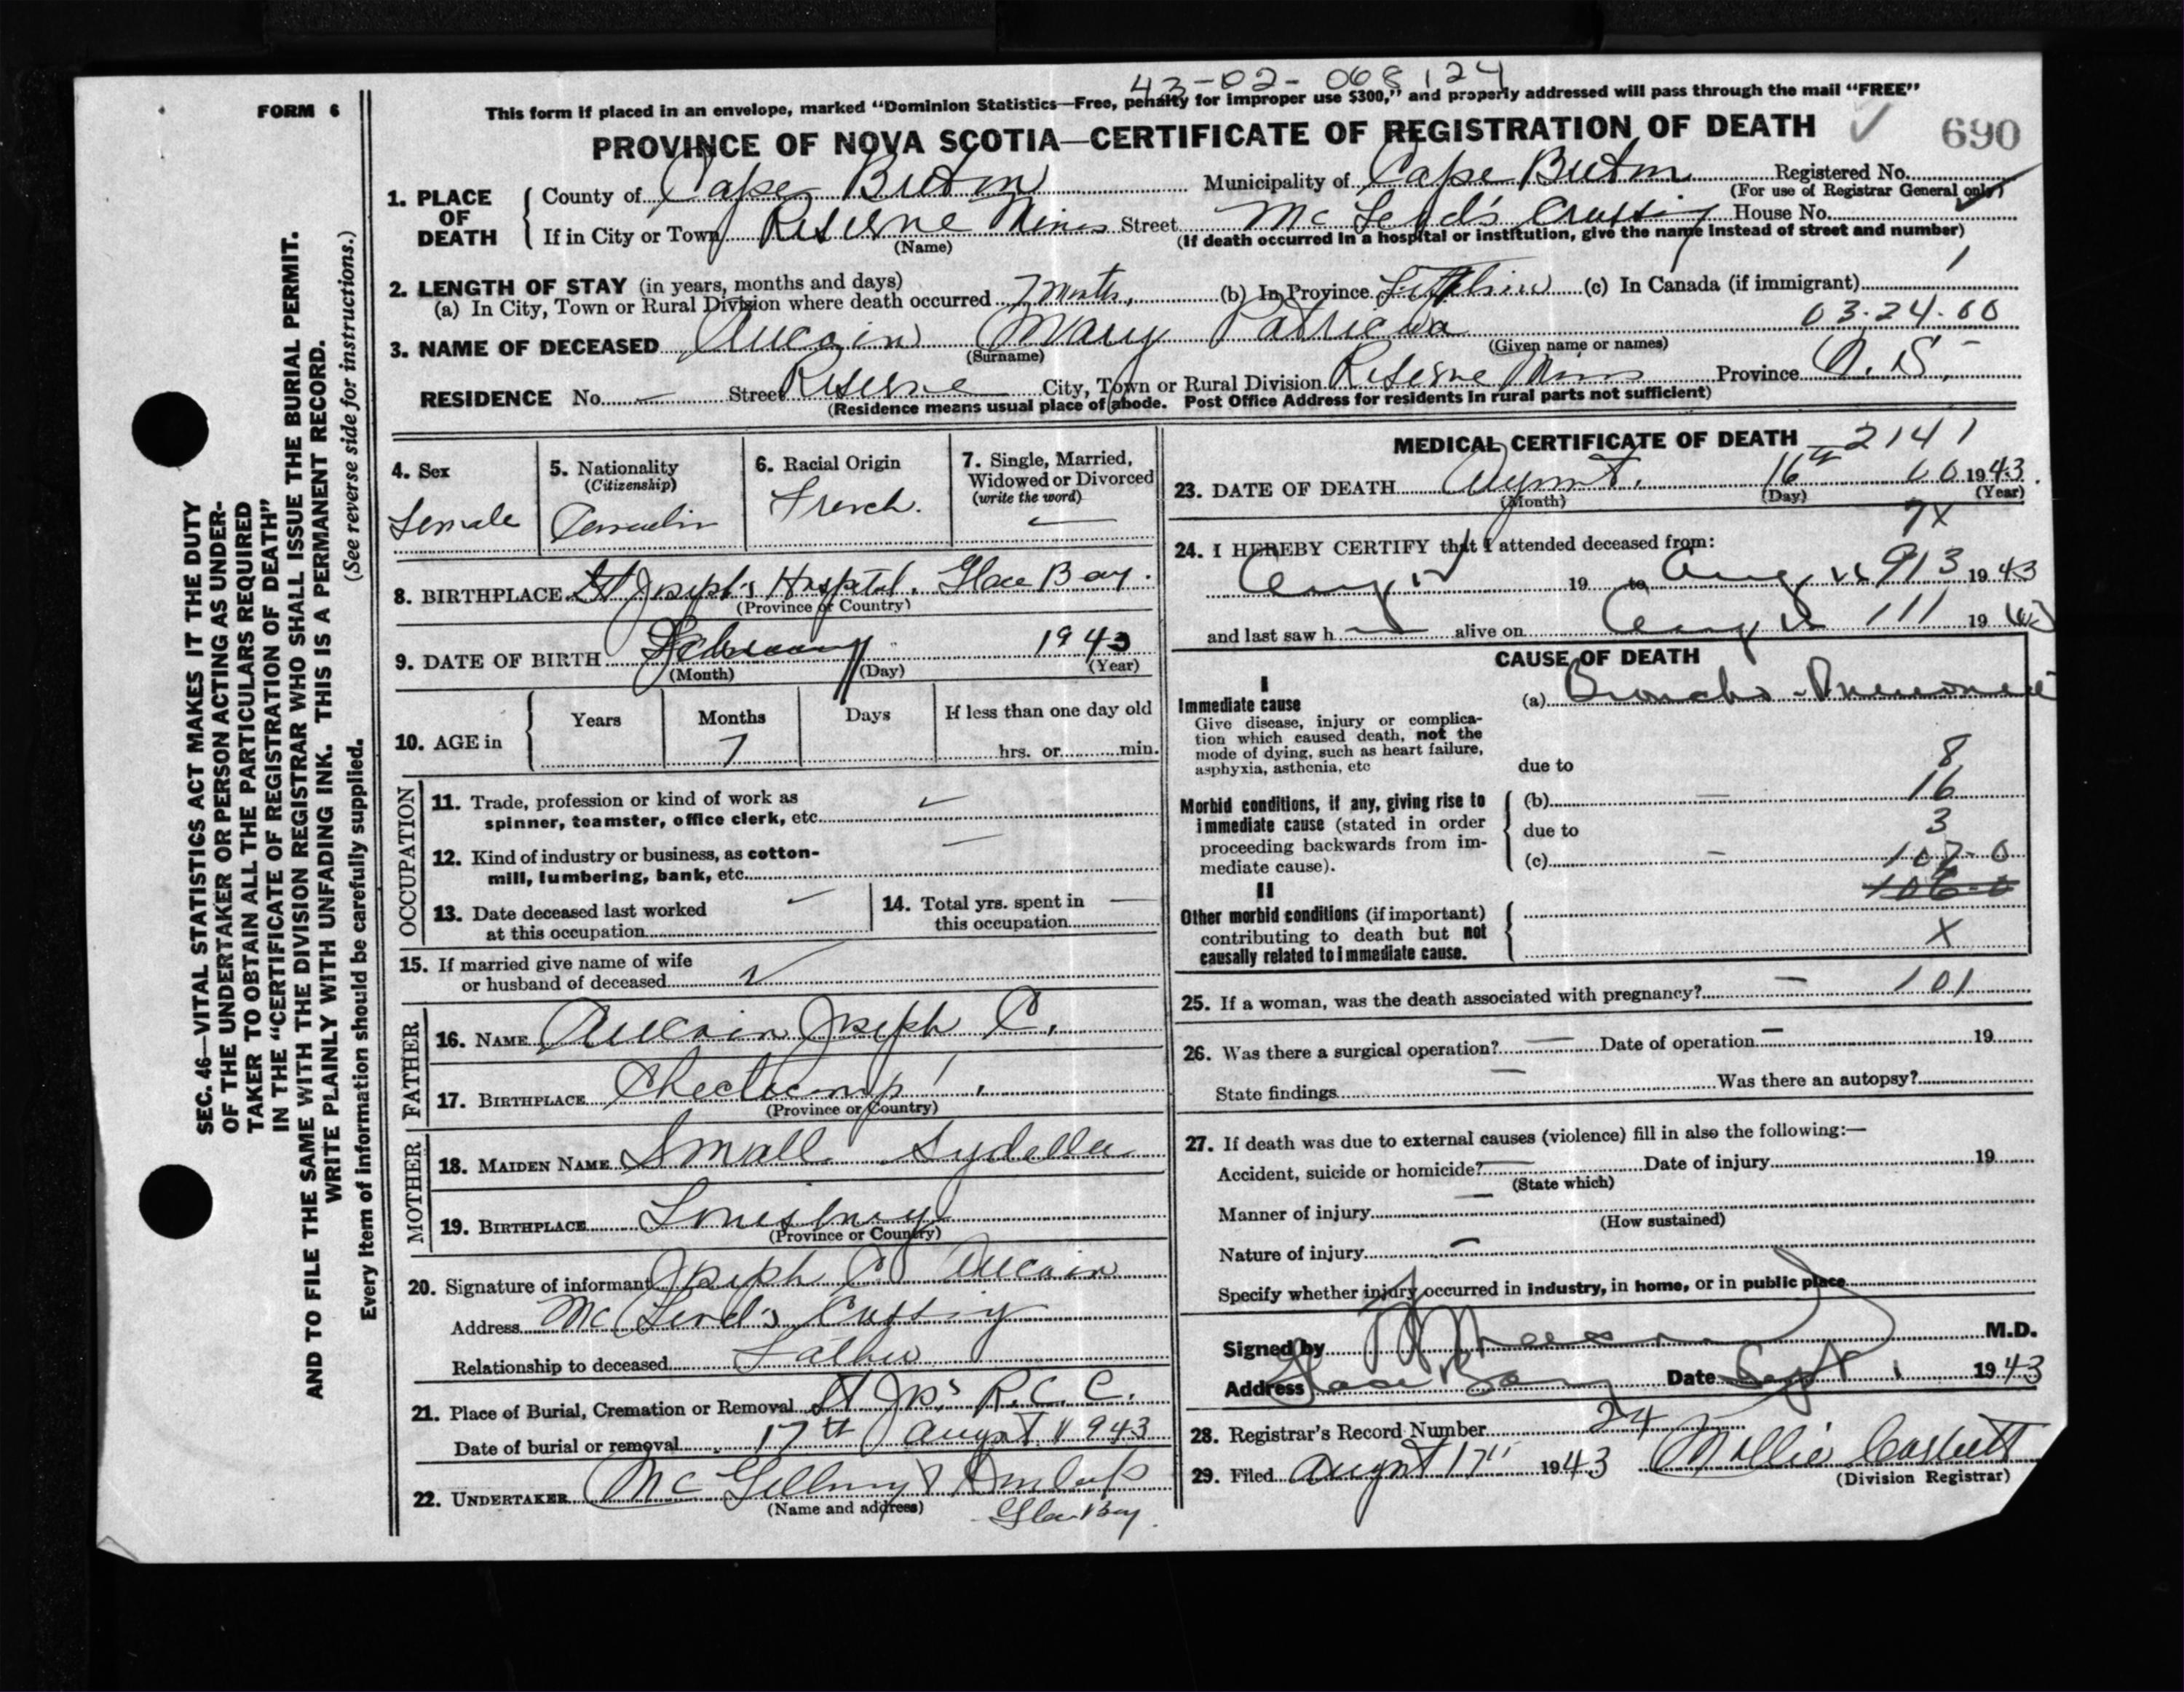 43-02-068124
FORM 6
This form if placed in an envelope, marked "Dominion Statistics—Free, penalty for improper use $300," and properly addressed will pass through the mail "FREE"
PROVINCE OF NOVA SCOTIA—CERTIFICATE OF REGISTRATION OF DEATH
690
1. PLACE OF DEATH
County of Cape Breton Municipality of Cape Breton Registered No.
(For use of Registrar General only)
If in City or Town Reserve Mines Street McLeod's Crossing House No.
(Name) (If death occurred in a hospital or institution, give the name instead of street and number)
2. LENGTH OF STAY (in years, months and days)
(a) In City, Town or Rural Division where death occurred 7 months, (b) In Province Lifetime (c) In Canada (if immigrant)
03-24-00
3. NAME OF DECEASED Aucoin Mary Patricia
(Surname) (Given name or names)
RESIDENCE No. Street Reserve City, Town or Rural Division Reserve Mines Province N.S.
(Residence means usual place of abode. Post Office Address for residents in rural parts not sufficient)
4. Sex
Female
5. Nationality
(Citizenship)
Canadian
6. Racial Origin
French.
7. Single, Married, Widowed or Divorced
(write the word)
8. BIRTHPLACE St Joseph's Hospital, Glace Bay.
(Province or Country)
9. DATE OF BIRTH February 1943
(Month) (Day) (Year)
10. AGE in
Years Months Days If less than one day old
7 hrs. or min.
OCCUPATION
11. Trade, profession or kind of work as
spinner, teamster, office clerk, etc.
12. Kind of industry or business, as cotton-
mill, lumbering, bank, etc.
13. Date deceased last worked
at this occupation
14. Total yrs. spent in
this occupation
15. If married give name of wife
or husband of deceased
FATHER
16. NAME Aucoin Joseph C.
17. BIRTHPLACE Cheticamp
(Province or Country)
MOTHER
18. MAIDEN NAME Small Sydella
19. BIRTHPLACE Louisburg
(Province or Country)
20. Signature of informant Joseph C Aucoin
Address McLeod's Crossing
Relationship to deceased Father
21. Place of Burial, Cremation or Removal St Jos R.C.C.
Date of burial or removal 17th August 1943
22. UNDERTAKER McGillvry & Dunlop
(Name and address) Glace Bay.
MEDICAL CERTIFICATE OF DEATH
2141
23. DATE OF DEATH August. 16th 00 1943
(Month) (Day) (Year)
7X
24. I HEREBY CERTIFY that I attended deceased from:
Aug 19 to Aug 913 1943
and last saw h alive on Aug 111 19 43
CAUSE OF DEATH
I
Immediate cause
Give disease, injury or complica-
tion which caused death, not the
mode of dying, such as heart failure,
asphyxia, asthenia, etc
(a) Broncho-Pneumonia
due to
8
Morbid conditions, if any, giving rise to
immediate cause (stated in order
proceeding backwards from im-
mediate cause).
(b)
16
due to
3
(c)
107-0
106-0
II
Other morbid conditions (if important)
contributing to death but not
causally related to immediate cause.
X
25. If a woman, was the death associated with pregnancy? 101
26. Was there a surgical operation? Date of operation 19
State findings Was there an autopsy?
27. If death was due to external causes (violence) fill in also the following:—
Accident, suicide or homicide? Date of injury 19
(State which)
Manner of injury
(How sustained)
Nature of injury
Specify whether injury occurred in industry, in home, or in public place
Signed by M.D.
Address Glace Bay Date Sept 1 1943
28. Registrar's Record Number 24
29. Filed August 17th 1943 Mollie
(Division Registrar)
SEC. 46—VITAL STATISTICS ACT MAKES IT THE DUTY
OF THE UNDERTAKER OR PERSON ACTING AS UNDER-
TAKER TO OBTAIN ALL THE PARTICULARS REQUIRED
IN THE "CERTIFICATE OF REGISTRATION OF DEATH"
AND TO FILE THE SAME WITH THE DIVISION REGISTRAR WHO SHALL ISSUE THE BURIAL PERMIT.
WRITE PLAINLY WITH UNFADING INK. THIS IS A PERMANENT RECORD.
Every item of information should be carefully supplied. (See reverse side for instructions.)